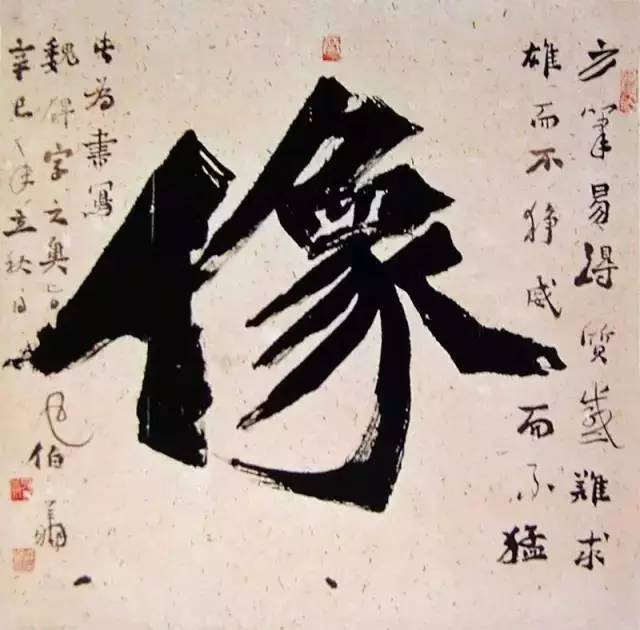 方筆易得質感難求
雄而不猙威而不猛
像
書寫
魏碑字之奥旨
辛巳之年立秋日
伯